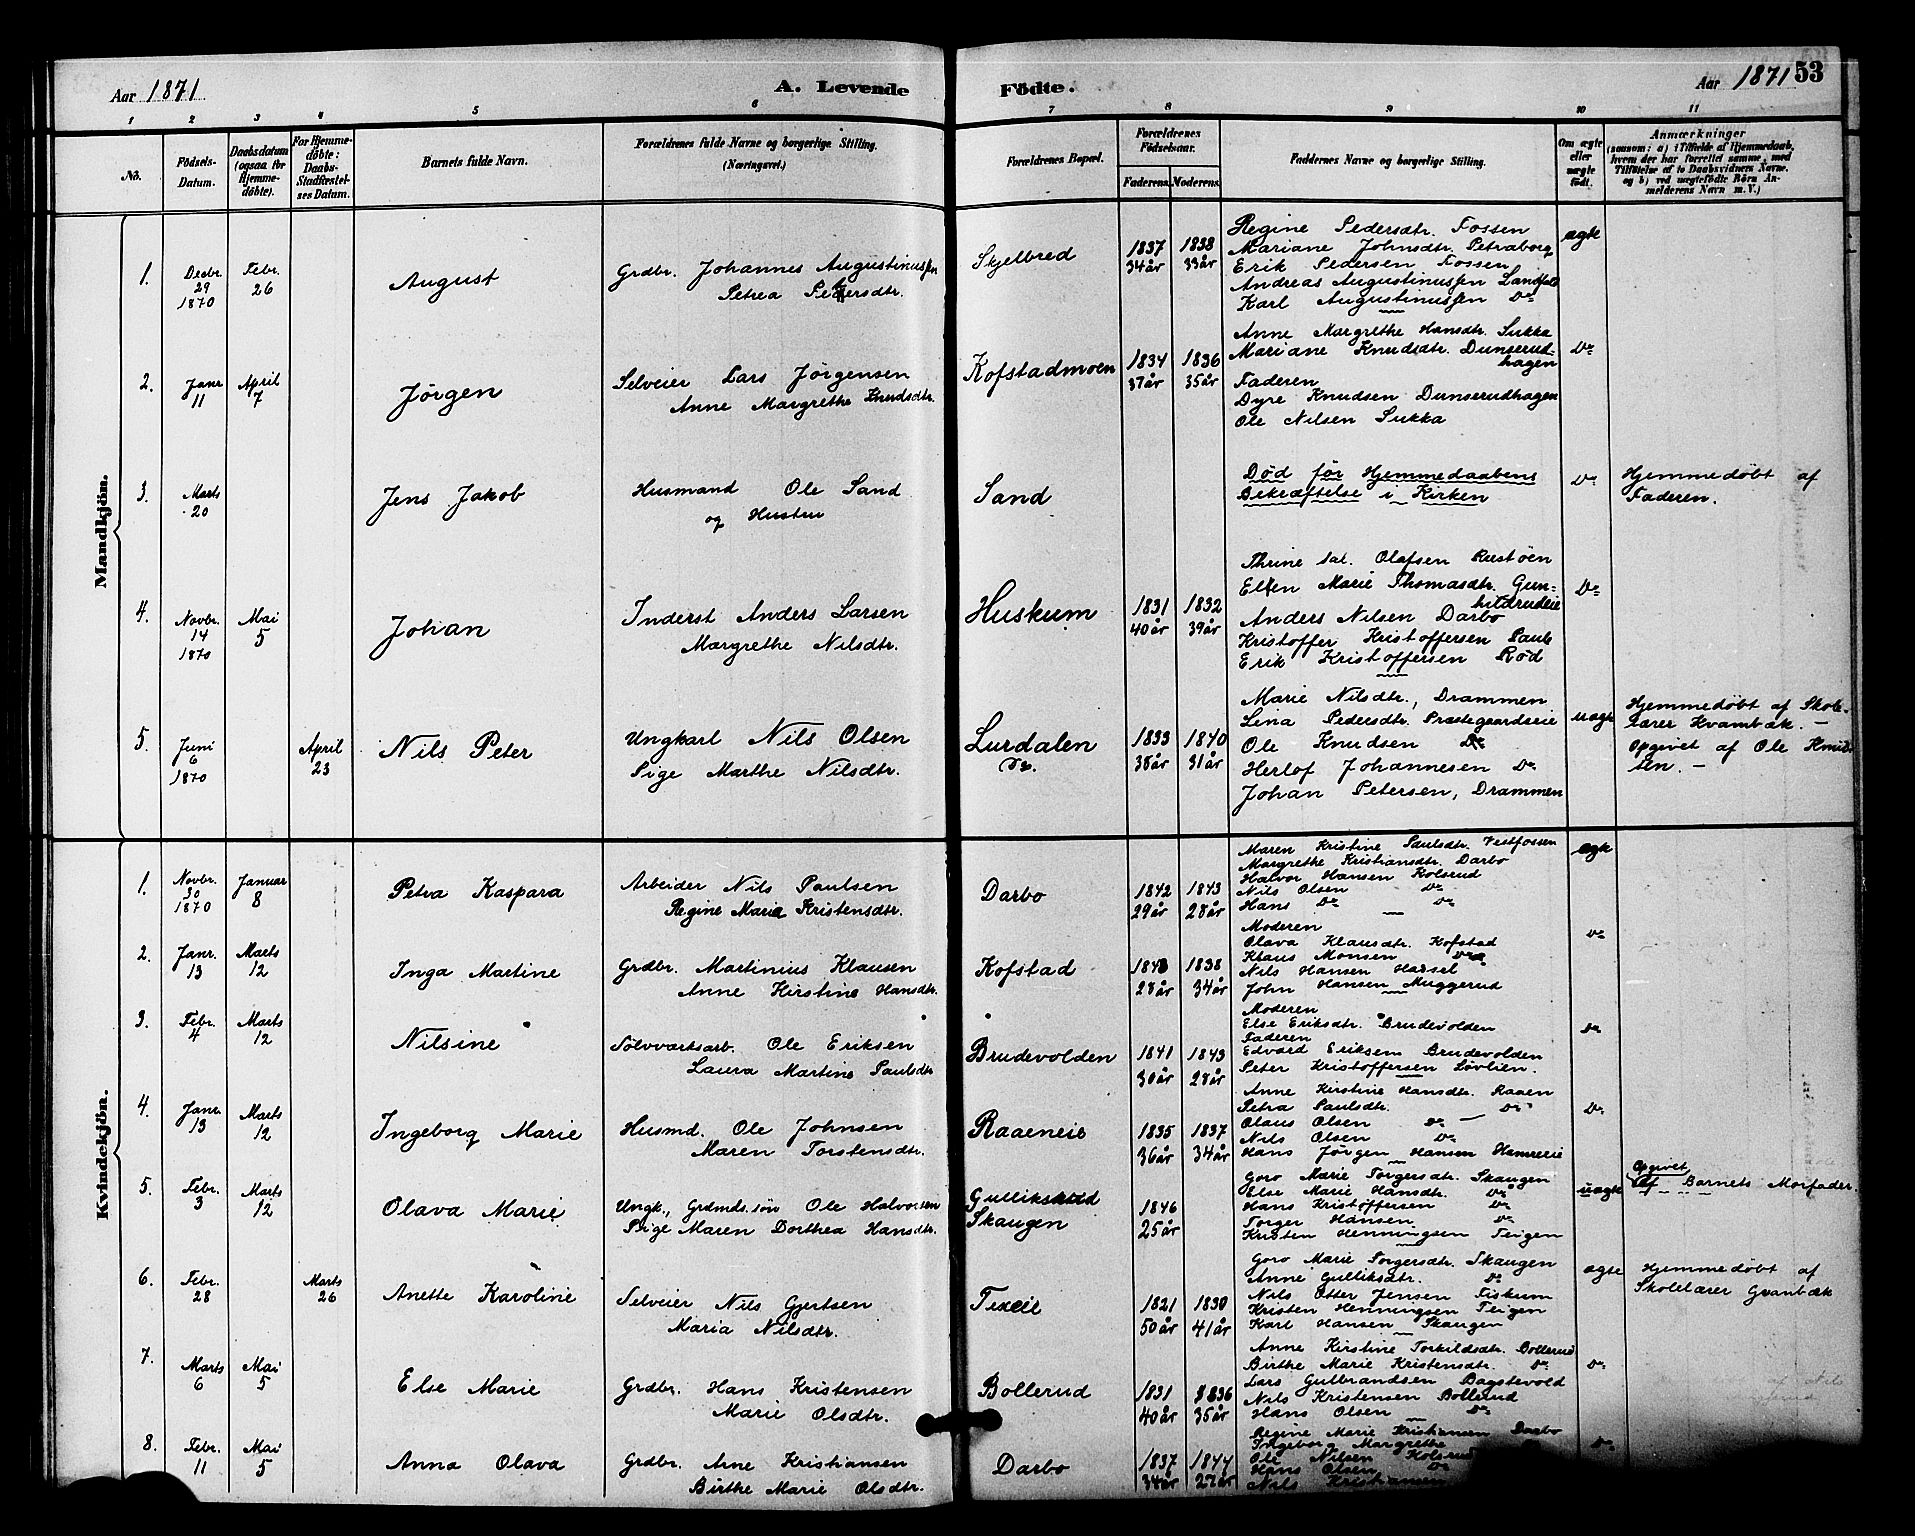 Aar 1871
A. Levende Födte.
Aar 1871 53
1 2 3 4 5 6 7 8 9 10 11
No.
Födsels-Datum.
Daabsdatum (ogsaa for Hjemmedöbte).
For Hjemmedöbte: Daabs-Stadfæstelses Datum.
Barnets fulde Navn.
Forældrenes fulde Navne og borgerlige Stilling. (Næringsvei.)
Forældrenes Bopæl.
Forældrenes Födselsaar.
Faderens. Moderens.
Faddernes Navne og borgerlige Stilling.
Om ægte eller uægte födt.
Anmærkninger
(saasom: a) i Tilfælde af Hjemmedaab, hvem der har forrettet samme, med Tilföielse af to Daabsvidners Navne, og b) ved uægtefödte Börn Anmelderens Navn m. V.)
Mandkjön.
1. Decbr. 29 1870
Febr. 26
August
Grdbr. Johannes Augustinussen
Petrea Petersdtr.
Skjelbred
1837 1838
34år 33år
Regine Pedersdtr. Fossen
Mariane Johnsdtr. Petraborg
Erik Pedersen Fossen
Andreas Augustinussen Landfald
Karl Augustinussen Do
ægte
2. Janr 11
April 7
Jörgen
Selveier Lars Jörgensen
Anne Margrethe Knudsdtr.
Kofstadmoen
1834 1836
37år 35år
Anne Margrethe Hansdtr. Sukka
Mariane Knudsdtr. Dunserud-
hagen
Faderen
Dyre Knudsen Dunserudhagen
Ole Nilsen Sukka
Do
3. Marts 20
Jens Jakob
Husmand Ole Sand
og Hustru
Sand
Död för Hjemmedaabens
Bekræftelse i Kirken
Do
Hjemmedöbt af
Faderen.
4. Novbr. 14 1870
Mai 5
Johan
Inderst Anders Larsen
Margrethe Nilsdtr.
Huskum
1831 1832
40år 39år
Thrine Olafsen
Ellen Marie Thomasdtr. Gun-
hildrudeie
Anders Nilsen Darbo
Kristoffer Kristoffersen
Erik Kristoffersen Röd
Do
5. Juni 6 1870
April 23
Nils Peter
Ungkarl Nils Olsen
Pige Marthe Nilsdtr.
Lurdalen
Do.
1833 1840
38år 31år
Marie Nilsdtr., Drammen
Lina Pedersdtr. Præstegaardseie
Ole Knudsen Do
Herlof Johannesen Do
Johan Petersen, Drammen
uægte
Hjemmedöbt af Skole-
lærer Kvambæk. -
Opgivet af Ole Knud-
sen. -
Kvindekjön.
1. Novbr. 30 1870
Januar 8
Petra Kaspara
Arbeider Nils Paulsen
Regine Marie Kristensdtr.
Darbo
1842 1843
29år 28år
Maren Kristine Paulsdtr. Vestfossen
Margrethe Kristiansdtr. Darbo
Halvor Hansen Kolsrud
Nils Olsen Do
Hans Do Do
ægte
2. Janr. 13
Marts 12
Inga Martine
Grdbr. Martinius Klausen
Anne Kirstine Hansdtr.
Kofstad
1843 1838
28år 34år
Moderen
Olava Klausdtr. Kofstad
Klaus Monsen Do
Nils Hansen Hassel
John Hansen Muggerud
Do
3. Febr. 4
Marts 12
Nilsine
Sölvværtsarb. Ole Eriksen
Laura Martine Paulsdtr
Brudevolden
1841 1843
30år 28år
Moderen
Else Eriksdtr. Brudevolden
Faderen
Edvard Eriksem Brudevolden
Peter Kristoffersen Lövlien.
Do
4. Janr. 13
Marts 12
Ingeborg Marie
Husmd. Ole Johnsen
Maren Torstensdtr.
Raaeneie
1835 1837
36år 34år
Anne Kirstine Hansdtr. Raaen
Petra Paulsdtr. — Do
Olaus Olsen Do
Nils Olsen Do
Hans Jörgen Hansen Hamreeie
Do
5. Febr. 3
Marts 12
Olava Marie
Ungk., Grdmds. sön Ole Halvorsen
Pige Maren Dorthea Hansdtr.
Gullikstad
Skaugen
1846
25år
Goro Marie Torgersdtr. Skaugen
Else Marie Hansdtr. Do
Hans Kristoffersen Do
Torger Hansen Do
Kristen Henningsen Teigen
uægte
Opgivet
af Barnets Morfader.
6. Febr. 28
Marts 26
Anette Karoline
Selveier Nils Gjertsen
Maria Nilsdtr.
Texeie
1821 1830
50år 41år
Goro Marie Torgersdtr. Skaugen
Anne Gulliksdtr. Do
Nils Otter Jensen Fiskum
Kristen Henningsen Teigen
Karl Hansen Skaugen
ægte
Hjemmedöbt af
Skolelærer Gvanbæk
7. Marts 6
Mai 5
Else Marie
Grdbr. Hans Kristensen
Marie Olsdtr.
Bollerud
1831 1836
40år 35år
Anne Kirstine Torkildsdtr. Bollerud
Birthe Marie Kristensdtr. Do
Lars Gulbrandsen Bagstevold
Nils Kristensen Bollerud
Hans Olsen Do
Do
8. Febr. 11
Mai 5
Anna Olava
Grdbr. Arne Kristiansen
Birthe Marie Olsdtr.
Darbo
1837 1844
34år 27år
Regine Marie Kristiansen Darbo
Ingeborg Margrethe
Ole Nilsen Kolsrud
Hans Olsen Do
Nils Kristiansen
Do